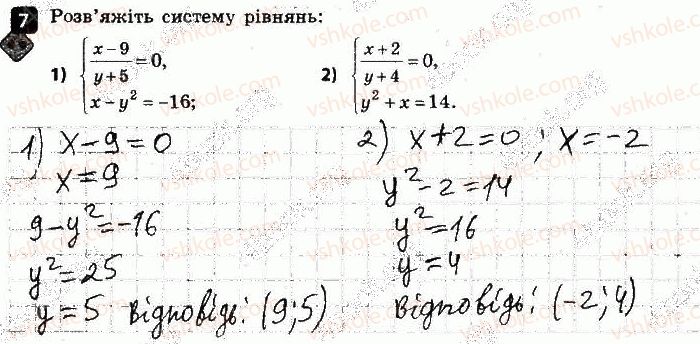 7 Розв'яжіть систему рівнянь:
1) { (x−9)/(y+5) = 0,
x − y² = −16;
2) { (x+2)/(y+4) = 0,
y² + x = 14.
1) x − 9 = 0
x = 9
9 − y² = −16
y² = 25
y = 5 Відповідь: (9; 5)
2) x + 2 = 0; x = −2
y² − 2 = 14
y² = 16
y = 4
Відповідь: (−2; 4)
vshkole.com